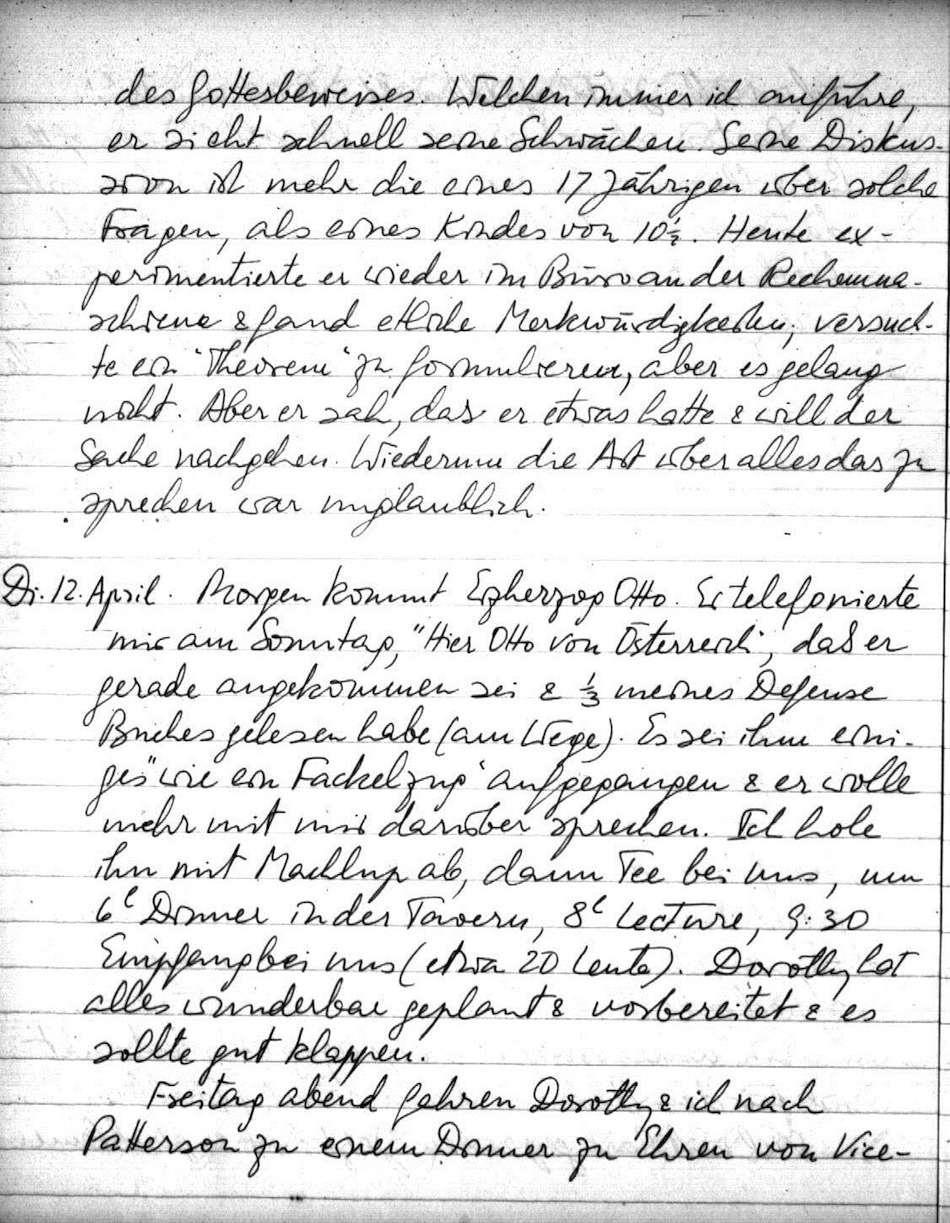 des Gottesbeweises. Welchen immer ich anführe,
er sieht schnell seine Schwächen. Seine Diskus-
sion ist mehr die eines 17 Jährigen über solche
Fragen, als eines Kindes von 10½. Heute ex-
perimentierte er wieder im Büro an der Rechenma-
schine & fand etliche Merkwürdigkeiten, versuch-
te ein "Theorem" zu formulieren, aber es gelang
nicht. Aber er sah, das er etwas hatte & will der
Sache nachgehen. Wiederum die Art über alles das zu
sprechen war unglaublich.
Di. 12. April. Morgen kommt Erzherzog Otto. Er telefonierte
mir am Sonntag, "Hier Otto von Österreich", daß er
gerade angekommen sei & ⅓ meines Defense
Buches gelesen habe (am Wege). Es sei ihm eini-
ges "wie ein Fackelzug" aufgegangen & er wolle
mehr mit mir darüber sprechen. Ich hole
ihn mit Machlup ab, dann Tee bei uns, um
6ʰ Dinner in der Tavern, 8ʰ Lecture, 9:30
Empfang bei uns (etwa 20 Leute). Dorothy hat
alles wunderbar geplant & vorbereitet & es
sollte gut klappen.
Freitag abend fahren Dorothy & ich nach
Patterson zu einem Dinner zu Ehren von Vice-